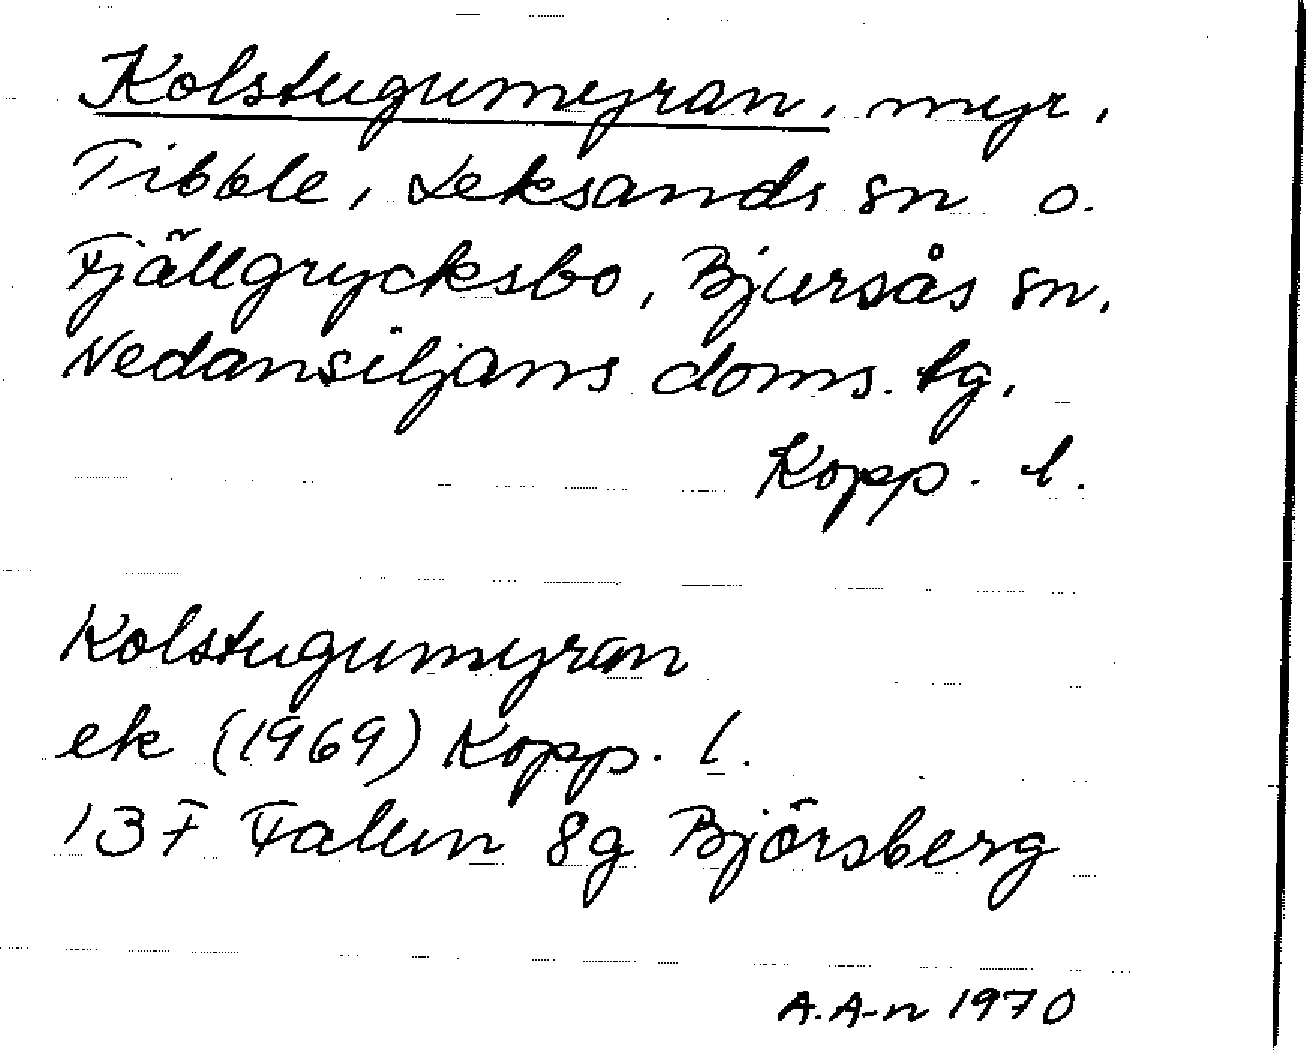 Kolstugumyran, myr,
Tibble, Leksands sn o.
Fjällgrycksbo, Bjursås sn,
Nedansiljans doms. tg.
Kopp. l.
Kolstugumyran
ek (1969) Kopp. l.
13F Falun 8g Björsberg
A.A-n 1970